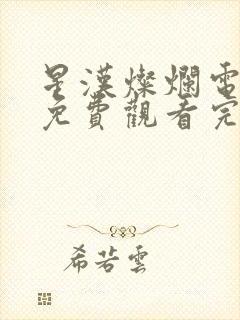 星漢燦爛電
免費觀看完
希若雲